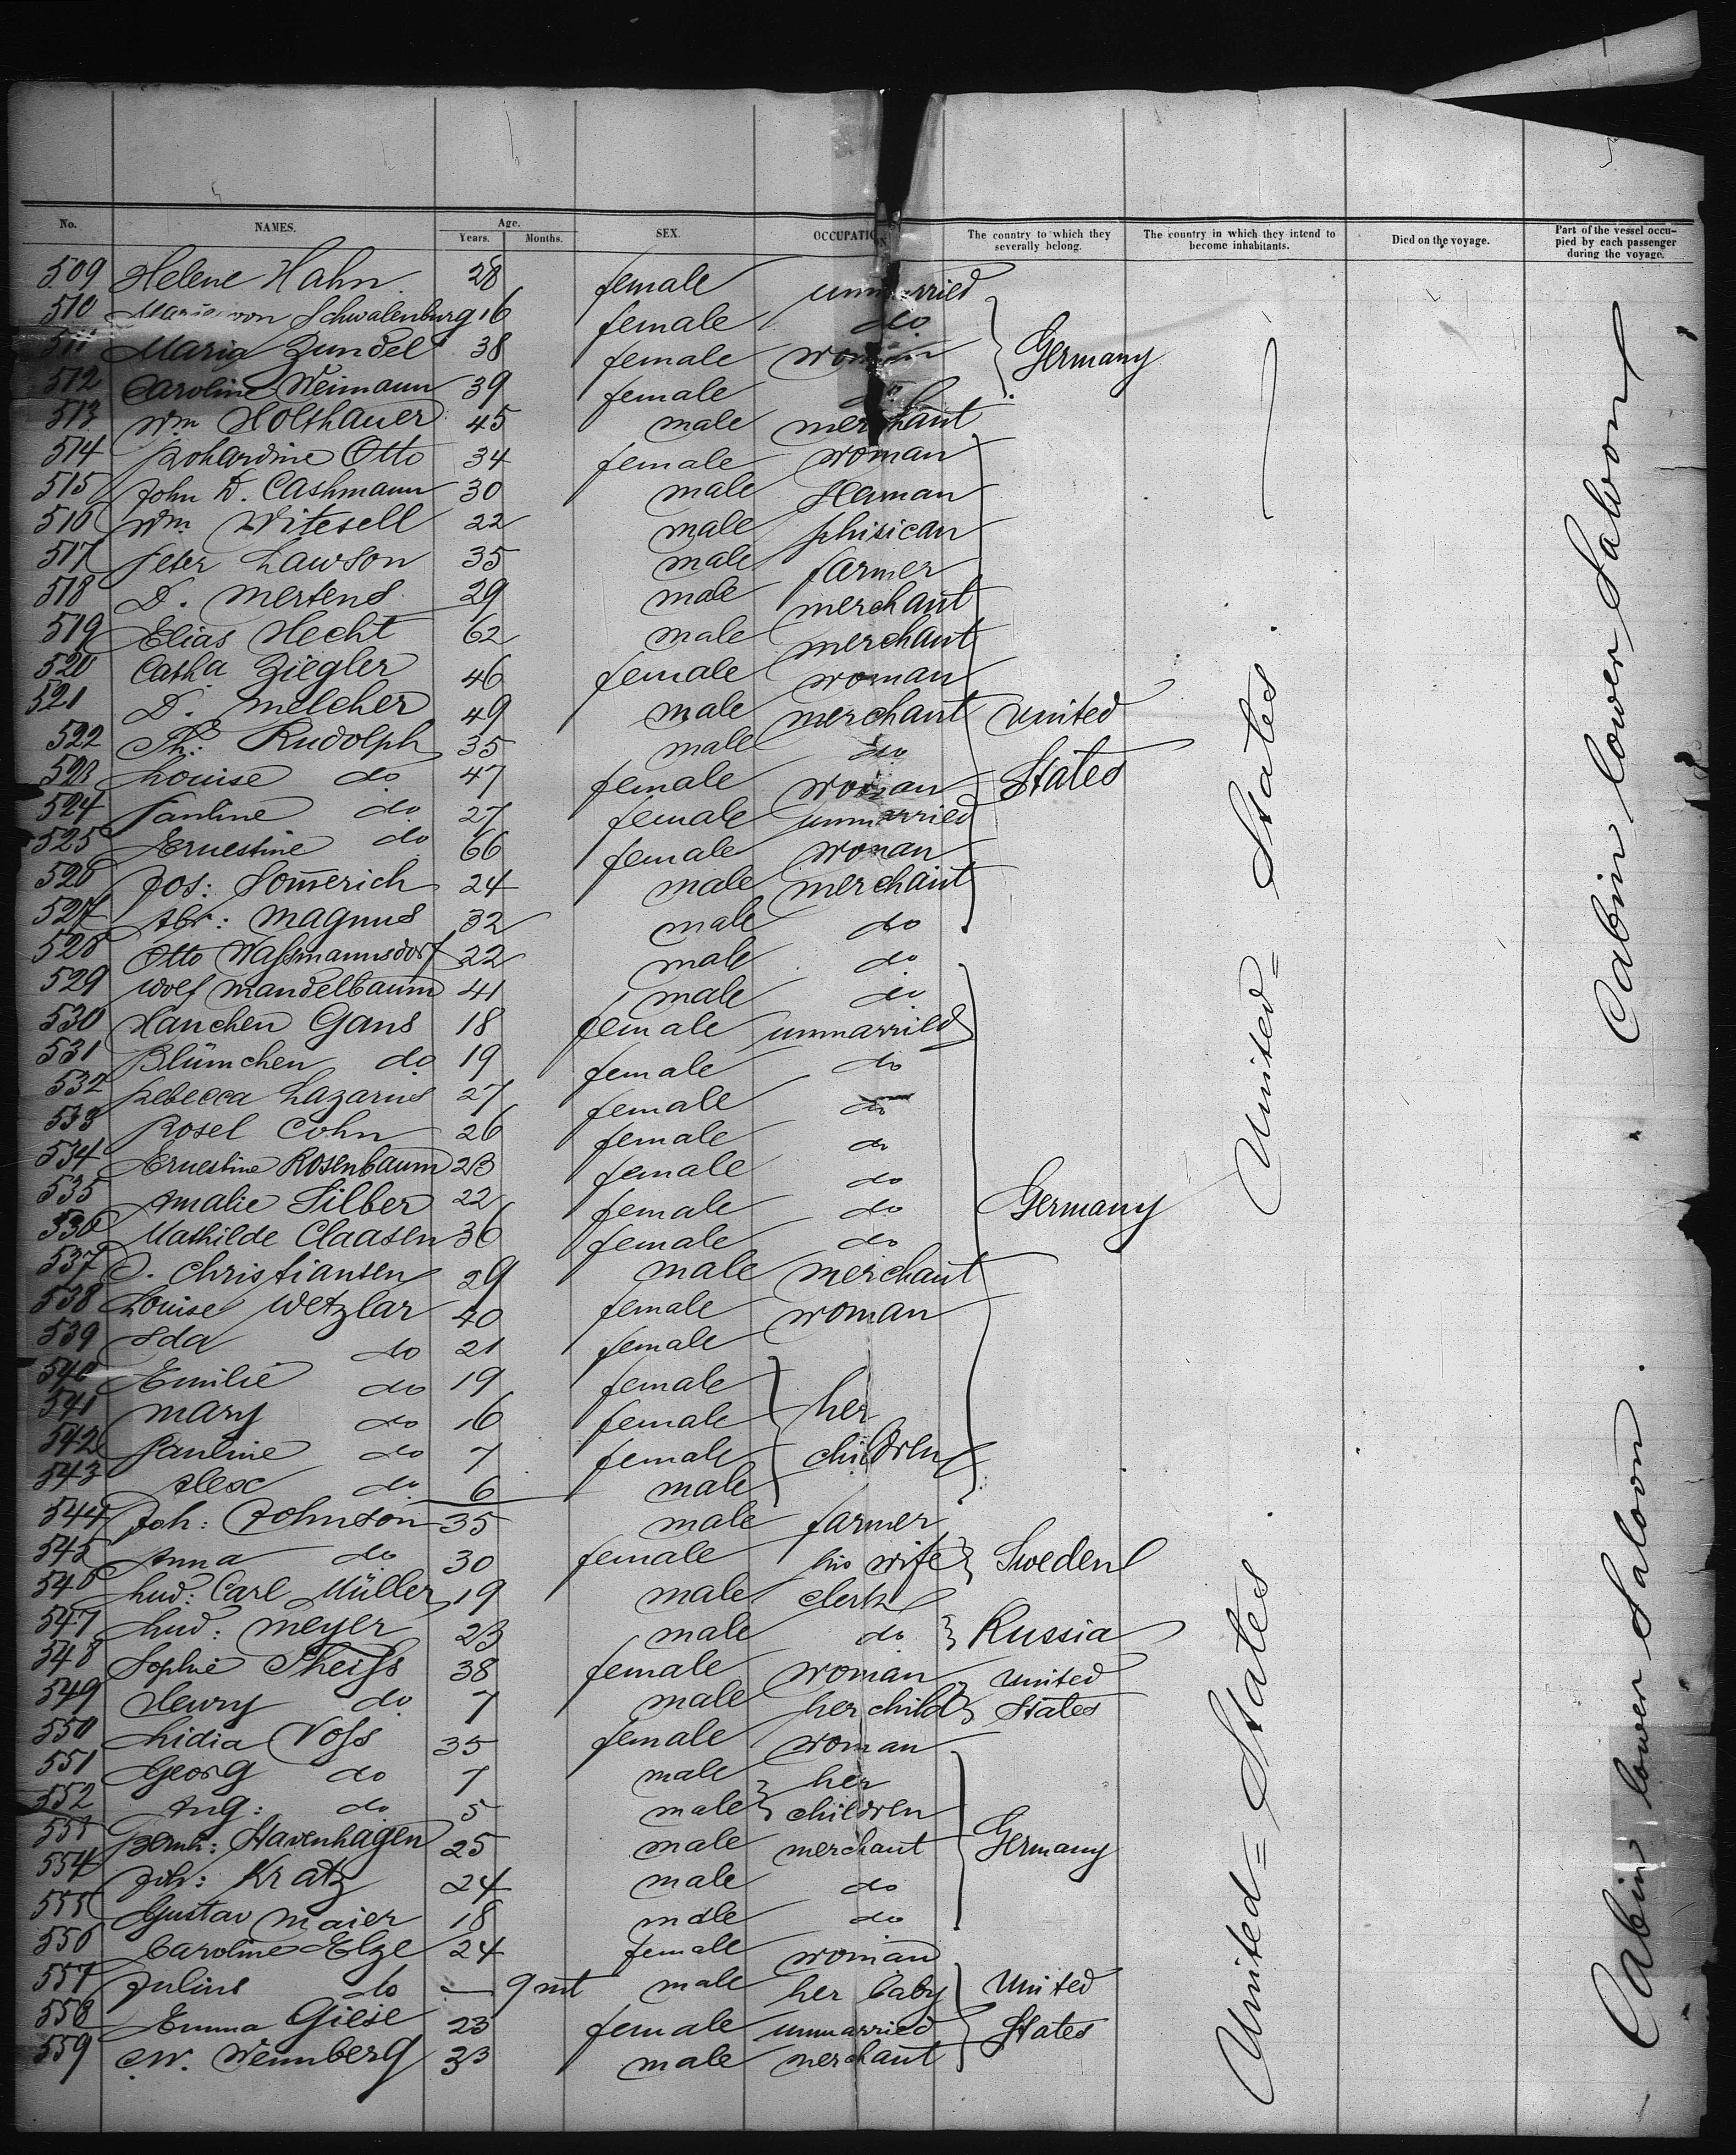 No. NAMES. Age. Years. Months. SEX. OCCUPATION The country to which they severally belong. The country in which they intend to become inhabitants. Died on the voyage. Part of the vessel occupied by each passenger during the voyage.
509 Helene Hahn 28 female unmarried
510 Maria von Schwalenburg 16 female do
511 Maria Zundel 38 female woman Germany
512 Caroline Weimann 39 female do
513 Wm Holthauer 45 male merchant
514 Otto 34 female woman
515 John D. Cashmann 30 male
516 Wm Witesell 22 male phisican
517 Peter Lawson 35 male farmer
518 D. Mertens 29 male merchant
519 Elias Hecht 62 male merchant
520 Catha Ziegler 46 female woman
521 D. Melcher 49 male merchant United
522 Th: Rudolph 35 male do
523 Louise do 47 female woman States
524 Pauline do 27 female unmarried
525 Ernestine do 66 female woman
526 Jos: Som̄erich 24 male merchant
527 Abr: Magnus 32 male do
528 Otto Waßmannsdorf 22 male do
529 Wolf Mandelbaum 41 male do
530 Hanchen Gans 18 female unmarried
531 Blümchen do 19 female do
532 Rebecca Lazarus 27 female do
533 Rosel Cohn 26 female do
534 Ernestine Rosenbaum 23 female do
535 Amalie Silber 22 female do Germany
536 Mathilde Claasen 36 female do
537 Christiansen 29 male merchant
538 Louise Wetzlar 40 female woman
539 Ida do 21 female
540 Emilie do 19 female
541 Mary do 16 female her
542 Pauline do 7 female children
543 Alex do 6 male
544 Joh: Johnson 35 male farmer
545 Anna do 30 female his wife Sweden
546 Lud: Carl Müller 19 male clerk
547 Lud: Meyer 23 male do Russia
548 Sophie Theiß 38 female woman United
549 Henry do 7 male her child States
550 Lidia Voß 35 female woman
551 Georg do 7 male her
552 Aug: do 5 male children
553 Bernh: Stavenhagen 25 male merchant Germany
554 Kratz 24 male do
555 Gustav Maier 18 male do
556 Caroline Elze 24 female woman
557 Julius do — 9 mt male her baby United
558 Emma Giese 23 female unmarried States
559 Wennberg 23 male merchant
United = States
United = States
Cabin lower Saloon
Cabin lower Saloon